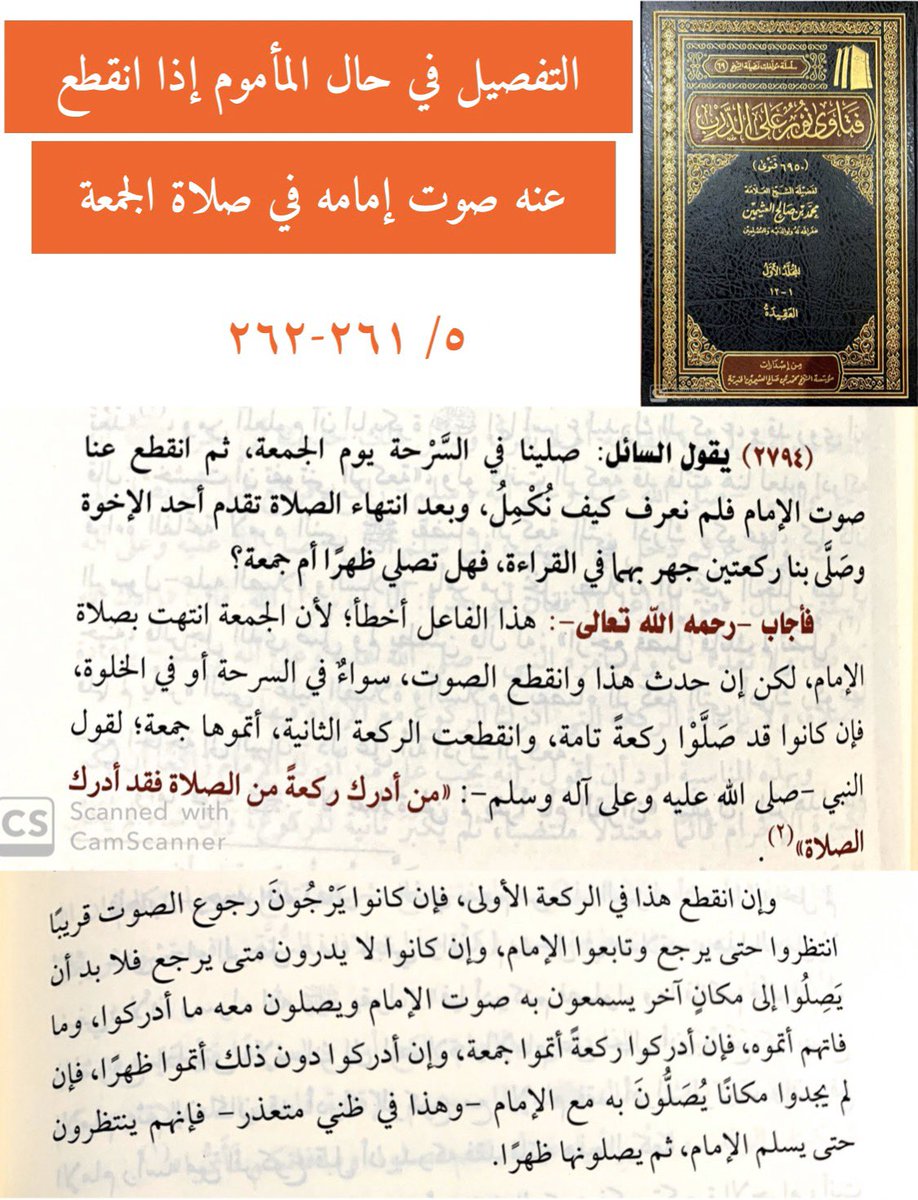 التفصيل في حال المأموم إذا انقطع
عنه صوت إمامه في صلاة الجمعة
٥/ ٢٦١-٢٦٢
سلسلة مؤلفات فضيلة الشيخ (٦٩)
فتاوى نور على الدرب
(٦٩٥٠ فتوى)
لفضيلة الشيخ العلامة
محمد بن صالح العثيمين
غفر الله له ولوالديه وللمسلمين
المجلد الأول
١-١٢
العقيدة
من إصدارات
مؤسسة الشيخ محمد بن صالح العثيمين الخيرية
(٢٧٩٤) يقول السائل: صلينا في السَّرْحة يوم الجمعة، ثم انقطع عنا
صوت الإمام فلم نعرف كيف نُكْمِلُ، وبعد انتهاء الصلاة تقدم أحد الإخوة
وصَلَّى بنا ركعتين جهر بهما في القراءة، فهل تصلي ظهرًا أم جمعة؟
فأجاب -رحمه الله تعالى-: هذا الفاعل أخطأ؛ لأن الجمعة انتهت بصلاة
الإمام، لكن إن حدث هذا وانقطع الصوت، سواءٌ في السرحة أو في الخلوة،
فإن كانوا قد صَلَّوْا ركعةً تامة، وانقطعت الركعة الثانية، أتموها جمعة؛ لقول
النبي -صلى الله عليه وعلى آله وسلم-: «من أدرك ركعةً من الصلاة فقد أدرك
الصلاة»(٢).
CS Scanned with
CamScanner
وإن انقطع هذا في الركعة الأولى، فإن كانوا يَرْجُونَ رجوع الصوت قريبًا
انتظروا حتى يرجع وتابعوا الإمام، وإن كانوا لا يدرون متى يرجع فلا بد أن
يَصِلُوا إلى مكانٍ آخر يسمعون به صوت الإمام ويصلون معه ما أدركوا، وما
فاتهم أتموه، فإن أدركوا ركعةً أتموا جمعة، وإن أدركوا دون ذلك أتموا ظهرًا، فإن
لم يجدوا مكانًا يُصَلُّونَ به مع الإمام -وهذا في ظني متعذر- فإنهم ينتظرون
حتى يسلم الإمام، ثم يصلونها ظهرًا.